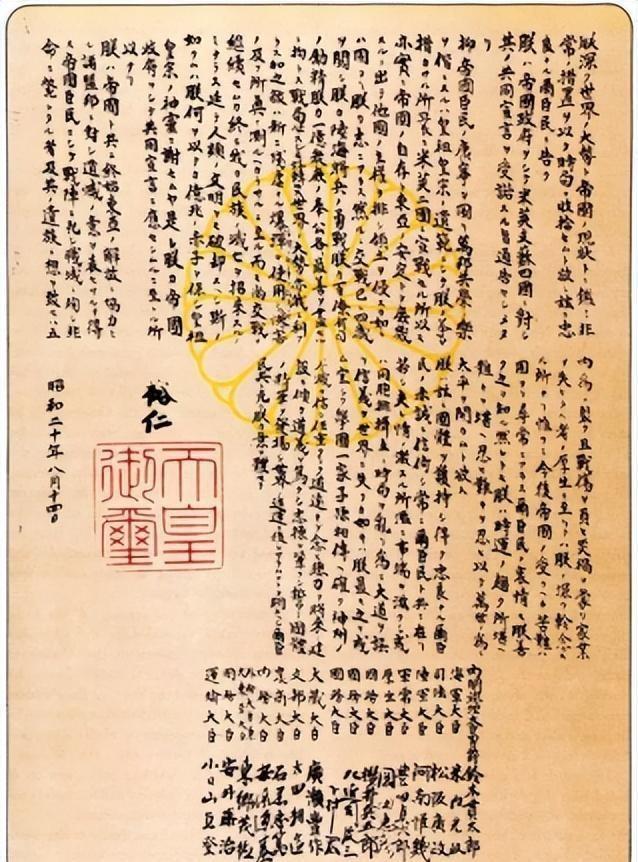 朕深ク世界ノ大勢ト帝國ノ現狀トニ鑑ミ非
常ノ措置ヲ以テ時局ヲ收拾セムト欲シ茲ニ忠
良ナル爾臣民ニ告ク
朕ハ帝國政府ヲシテ米英支蘇四國ニ對シ
其ノ共同宣言ヲ受諾スル旨通告セシメタ
リ
抑帝國臣民ノ康寧ヲ圖リ萬邦共榮ノ樂
ヲ偕ニスルハ皇祖皇宗ノ遺範ニシテ朕ノ拳々
措カサル所曩ニ米英二國ニ宣戰セル所以モ
亦實ニ帝國ノ自存ト東亞ノ安定トヲ庶幾
スルニ出テ他國ノ主權ヲ排シ領土ヲ侵スカ如
キハ固ヨリ朕カ志ニアラス然ルニ交戰已ニ四歲
ヲ閱シ朕カ陸海將兵ノ勇戰朕カ百僚有司
ノ勵精朕カ一億衆庶ノ奉公各最善ヲ盡セル
ニ拘ラス戰局必スシモ好轉セス世界ノ大勢亦我ニ利
アラス加之敵ハ新ニ殘虐ナル爆彈ヲ使用シテ慘害
ノ及フ所眞ニ測ルヘカラサルニ至ル而モ尚交戰ヲ
繼續セムカ終ニ我カ民族ノ滅亡ヲ招來スル
ノミナラス延テ人類ノ文明ヲモ破却スヘシ斯ノ
如クムハ朕何ヲ以テカ億兆ノ赤子ヲ保シ皇祖
皇宗ノ神靈ニ謝セムヤ是レ朕カ帝國
政府ヲシテ共同宣言ニ應セシムルニ至レル所
以ナリ
朕ハ帝國ト共ニ終始東亞ノ解放ニ協力セ
ル諸盟邦ニ對シ遺憾ノ意ヲ表セサルヲ得
ス帝國臣民ニシテ戰陣ニ死シ職域ニ殉シ非
命ニ斃レタル者及其ノ遺族ニ想ヲ致セハ五
内爲ニ裂ク且戰傷ヲ負ヒ災禍ヲ蒙リ家業
ヲ失ヒタル者ノ厚生ニ至リテハ朕ノ深ク軫念ス
ル所ナリ惟フニ今後帝國ノ受クヘキ苦難ハ
固ヨリ尋常ニアラス爾臣民ノ衷情モ朕善
ク之ヲ知ル然レトモ朕ハ時運ノ趨ク所堪ヘ
難キヲ堪ヘ忍ヒ難キヲ忍ヒ以テ萬世ノ爲ニ
太平ヲ開カムト欲ス
朕ハ茲ニ國體ヲ護持シ得テ忠良ナル爾臣
民ノ赤誠ニ信倚シ常ニ爾臣民ト共ニ在リ
若シ夫レ情ノ激スル所濫ニ事端ヲ滋クシ或
ハ同胞排擠互ニ時局ヲ亂リ爲ニ大道ヲ誤
リ信義ヲ世界ニ失フカ如キハ朕最モ之ヲ戒
ム宜シク擧國一家子孫相傳ヘ確ク神州ノ
不滅ヲ信シ任重クシテ道遠キヲ念ヒ總力ヲ將來ノ建
設ニ傾ケ道義ヲ篤クシ志操ヲ鞏クシ誓テ國體
ノ精華ヲ發揚シ世界ノ進運ニ後レサラムコトヲ期スヘシ爾臣
民其レ克ク朕カ意ヲ體セヨ
裕仁
天皇
御璽
昭和二十年八月十四日
内閣總理大臣男爵鈴木貫太郎
海軍大臣 米内光政
司法大臣 松阪廣政
陸軍大臣 阿南惟幾
軍需大臣 豐田貞次郎
厚生大臣 岡田忠彦
國務大臣 櫻井兵五郎
國務大臣 左近司政三
國務大臣 下村宏
大藏大臣 廣瀬豐作
文部大臣 太田耕造
農商大臣 石黒忠篤
内務大臣 安倍源基
外務大臣兼大東亞大臣 東郷茂徳
國務大臣 安井藤治
運輸大臣 小日山直登